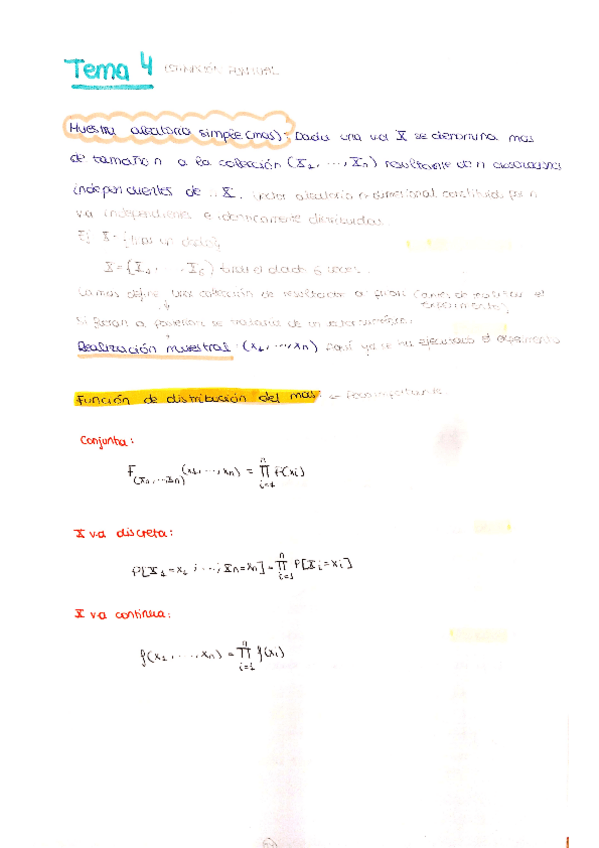 Tema 4 ESTIMACIÓN PUNTUAL
Muestra aleatoria simple (mas): Dada una va X se denomina mas
de tamaño n a la colección (X1, ..., Xn) resultante de n observaciones
independientes de X. vector aleatorio n-dimensional constituido por n
va independientes e idénticamente distribuidas.
Ej X={tirar un dado}
X={X1, ..., X6} tirar el dado 6 veces.
La mas define una colección de resultados a priori (antes de realizar el
experimento)
Si fueran a posteriori se trataría de un vector numérico.
Realización muestral: (x1, ..., xn) Aquí ya se ha ejecutado el experimento
Función de distribución del mas:
Conjunta:
F(X1, ..., Xn) (x1, ..., xn) = ∏ i=1 n F(xi)
X va discreta:
P[X1 = x1 ; ...; Xn = xn] = ∏ i=1 n P[Xi = xi]
X va continua:
f(x1, ..., xn) = ∏ i=1 n f(xi)